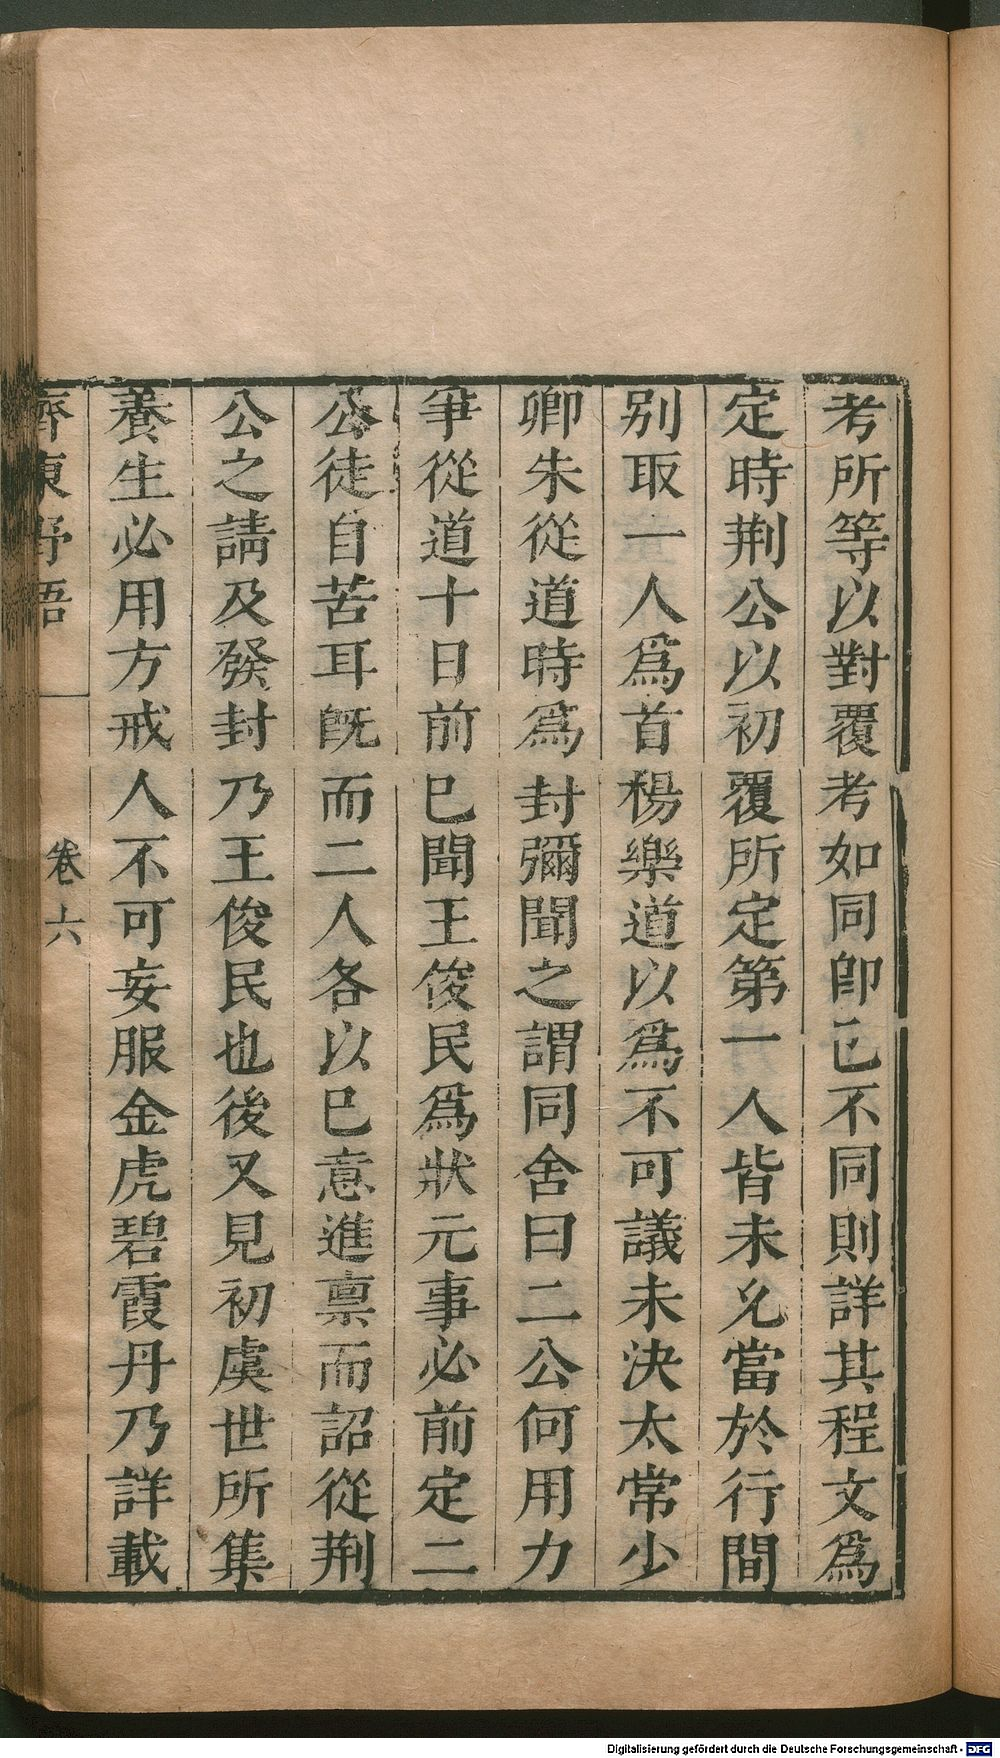 考所等以對覆考如同卽已不同則詳其程文爲
定時荆公以初覆所定第一人皆未允當於行間
别取一人爲首楊樂道以爲不可議未決太常少
卿朱從道時爲封彌聞之謂同舍曰二公何用力
爭從道十日前已聞王俊民爲狀元事必前定二
公徒自苦耳旣而二人各以已意進禀而詔從荆
公之請及發封乃王俊民也後又見初虞世所集
養生必用方戒人不可妄服金虎碧霞丹乃詳載
齊東野語
卷六
Digitalisierung gefördert durch die Deutsche Forschungsgemeinschaft - DFG